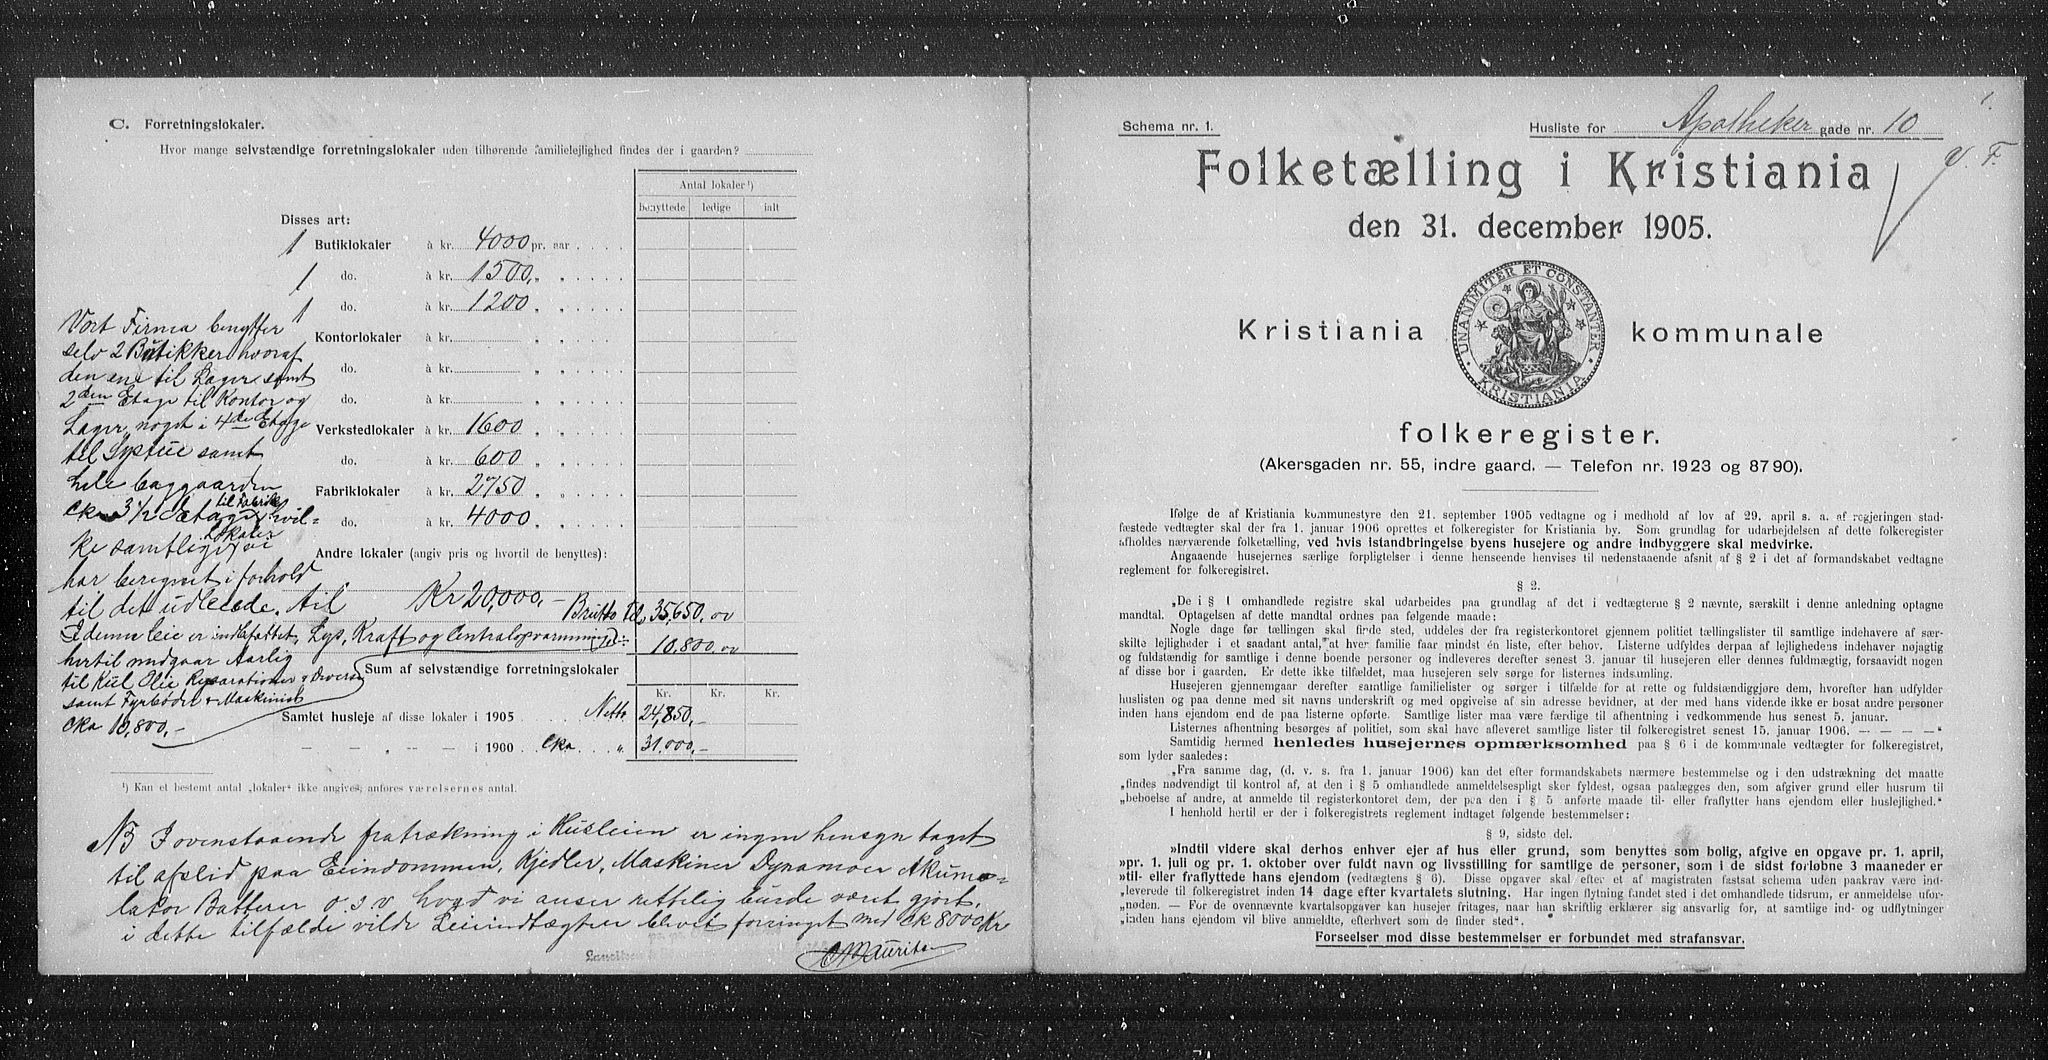 C. Forretningslokaler.
Hvor mange selvstændige forretningslokaler uden tilhørende familielejlighed findes der i gaarden?
Antal lokaler¹)
benyttede ledige ialt
Disses art:
1 Butiklokaler à kr. 4000 pr. aar
1 do. à kr. 1500, „ „
1 do. à kr. 1200 „ „
Kontorlokaler à kr. „ „
do. à kr. „ „
do. à kr. „ „
Verkstedlokaler à kr. 1600 „ „
do. à kr. 600 „ „
Fabriklokaler à kr. 2750 „ „
do. à kr. 4000 „ „
Andre lokaler (angiv pris og hvortil de benyttes):
Vort Firma benytter
selv 2 Butikker hvoraf
den ene til Lager samt
2den Etage til Kontor og
Lager, noget i 4de Etage
til Systue samt
hele baggaarden
cka 3½ Etage til Fabrik Lokaler hvil-
ke samtlige vi
har beregnet i forhold
til det udleiede. til Kr 20,000,- Brutto Kr 35,650,00
I denne leie er indbefattet Lys, Kraft og Centralopvarmning
hertil medgaar Aarlig 10,800,00
til Kul Olie Reparationer & Diverse
samt Fyrbøder & Maskinist
cka 10,800,-
Sum af selvstændige forretningslokaler
Kr. Kr. Kr.
Samlet husleje af disse lokaler i 1905 Netto 24,850,-
— — „ — — i 1900 Cka „ 31,000,-
¹) Kan et bestemt antal „lokaler“ ikke angives, anføres værelsernes antal.
NB I ovenstaaende fratrækning i Husleien er ingen hensyn taget
til afslid paa Eiendommen, Kjedler, Maskiner Dynamoer Akumu-
lator Batterier o.s.v. hvad vi anser rettelig burde været gjort,
i dette tilfælde vilde Leieindtægten blevet forringet med ck 8000 Kr
1.
Schema nr. 1.
Husliste for Apotheker gade nr. 10
V. F.
Folketælling i Kristiania
den 31. december 1905.
Kristiania kommunale
UNANIMITER ET CONSTANTER
KRISTIANIA
folkeregister.
(Akersgaden nr. 55, indre gaard. — Telefon nr. 1923 og 8790).
Ifølge de af Kristiania kommunestyre den 21. september 1905 vedtagne og i medhold af lov af 29. april s. a. af regjeringen stad-
fæstede vedtægter skal der fra 1. januar 1906 oprettes et folkeregister for Kristiania by. Som grundlag for udarbejdelsen af dette folkeregister
afholdes nærværende folketælling, ved hvis istandbringelse byens husejere og andre indbyggere skal medvirke.
Angaaende husejernes særlige forpligtelser i denne henseende henvises til nedenstaaende afsnit af § 2 i det af formandskabet vedtagne
reglement for folkeregistret.
§ 2.
„De i § 1 omhandlede registre skal udarbeides paa grundlag af det i vedtægterne § 2 nævnte, særskilt i denne anledning optagne
mandtal. Optagelsen af dette mandtal ordnes paa følgende maade:
Nogle dage før tællingen skal finde sted, uddeles der fra registerkontoret gjennem politiet tællingslister til samtlige indehavere af sær-
skilte lejligheder i et saadant antal, at hver familie faar mindst én liste, efter behov. Listerne udfyldes derpaa af lejlighedens indehaver nøjagtig
og fuldstændig for samtlige i denne boende personer og indleveres derefter senest 3. januar til husejeren eller dennes fuldmægtig, forsaavidt nogen
af disse bor i gaarden. Er dette ikke tilfældet, maa husejeren selv sørge for listernes indsamling.
Husejeren gjennemgaar derefter samtlige familielister og sørger i tilfælde for at rette og fuldstændiggjøre dem, hvorefter han udfylder
huslisten og paa denne med sit navns underskrift og med opgivelse af sin adresse bevidner, at der med hans vidende ikke er bosat andre personer
inden hans ejendom end de paa listerne opførte. Samtlige lister maa være færdige til afhentning i vedkommende hus senest 5. januar.
Listernes afhentning besørges af politiet, som skal have afleveret samtlige lister til folkeregistret senest 15. januar 1906. — — — —“
Samtidig hermed henledes husejernes opmærksomhed paa § 6 i de kommunale vedtægter for folkeregistret,
som lyder saaledes:
„Fra samme dag, (d. v. s. fra 1. januar 1906) kan det efter formandskabets nærmere bestemmelse og i den udstrækning det maatte
„findes nødvendigt til kontrol af, at den i § 5 omhandlede anmeldelsespligt sker fyldest, ogsaa paalægges den, som afgiver grund eller husrum til
„beboelse af andre, at anmelde til registerkontoret dem, der paa den i § 5 anførte maade til- eller fraflytter hans ejendom eller huslejlighed.“
I henhold hertil er der i folkeregistrets reglement indtaget følgende bestemmelser:
§ 9, sidste del.
„Indtil videre skal derhos enhver ejer af hus eller grund, som benyttes som bolig, afgive en opgave pr. 1. april,
„pr. 1. juli og pr. 1. oktober over fuldt navn og livsstilling for samtlige de personer, som i de sidst forløbne 3 maaneder er
„til- eller fraflyttede hans ejendom (vedtægtens § 6). Disse opgaver skal efter et af magistraten fastsat schema uden paakrav være ind-
„leverede til folkeregistret inden 14 dage efter kvartalets slutning. Har ingen flytning fundet sted i det omhandlede tidsrum, er anmeldelse ufor-
„nøden. — For de ovennævnte kvartalsopgaver kan husejer fritages, naar han skriftlig erklærer sig ansvarlig for, at samtlige ind- og udflytninger
„inden hans ejendom vil blive anmeldte, efterhvert som de finder sted“.
Forseelser mod disse bestemmelser er forbundet med strafansvar.